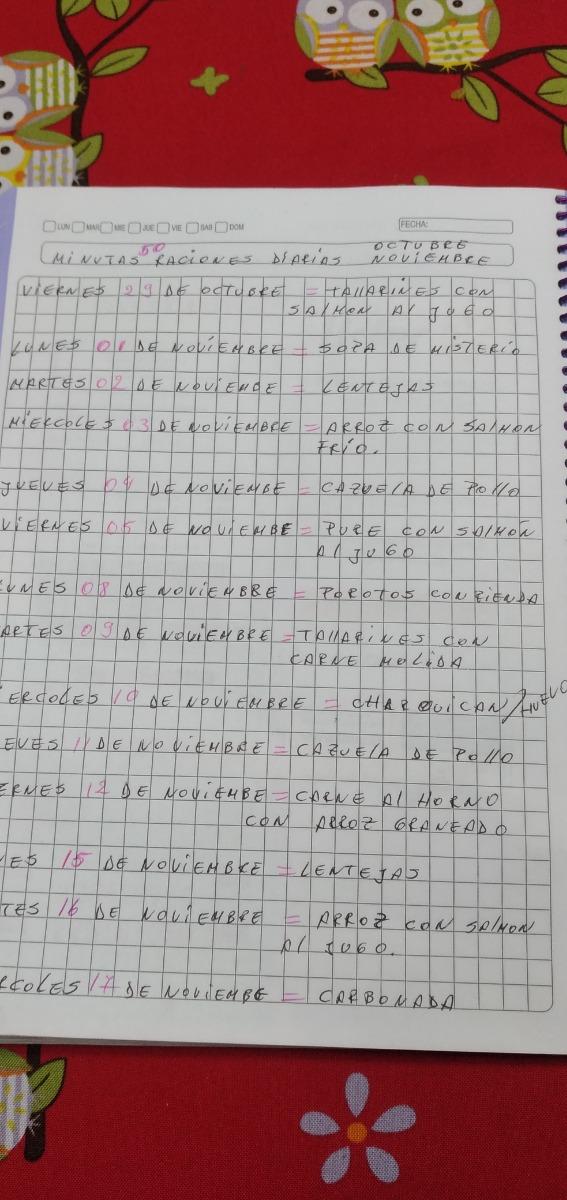 LUN MAR MIE JUE VIE SAB DOM FECHA:
OCTUBRE
MINUTAS 50 RACIONES DIARIAS NOVIEMBRE
VIERNES 29 DE OCTUBRE = TALLARINES CON
SALMON AL JUGO
LUNES 01 DE NOVIEMBRE = SOPA DE MISTERIO
MARTES 02 DE NOVIEMBE = LENTEJAS
MIERCOLES 03 DE NOVIEMBRE = ARROZ CON SALMON
FRIO.
JUEVES 04 DE NOVIEMBE = CAZUELA DE POLLO
VIERNES 05 DE NOVIEMBE = PURE CON SALMON
AL JUGO
LUNES 08 DE NOVIEMBRE = POROTOS CON RIENDA
ARTES 09 DE NOVIEMBRE = TALLARINES CON
CARNE MOLIDA
ERCOLES 10 DE NOVIEMBRE = CHARQUICAN/HUEVO
EVES 11 DE NOVIEMBRE = CAZUELA DE POLLO
ERNES 12 DE NOVIEMBE = CARNE AL HORNO
CON ARROZ GRANEADO
NES 15 DE NOVIEMBRE = LENTEJAS
TES 16 DE NOVIEMBRE = ARROZ CON SALMON
AL JUGO.
RCOLES 17 DE NOVIEMBE = CARBONADA